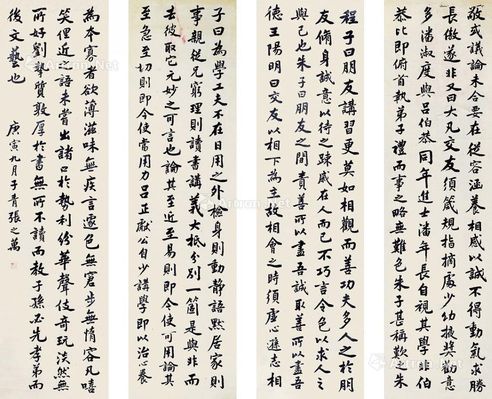 程子曰朋友講習更莫如相觀而善工夫多人之於朋
友脩身誠意以待之疎戚在人而已不巧言令色以求人之
與己也朱子曰朋友之間責善所以盡吾誠取善所以益吾
德王陽明曰交友以相下為主故相會之時須虛心遜志相
敬或議論未合要在從容涵養相感以誠不得動氣求勝
長傲遂非又曰大凡交友須箴規指摘處少誘掖獎勸意
多潘淑度與呂伯恭同年進士潘年長自視其學非伯
恭比即俯首執弟子禮而事之略無難色朱子甚稱歎之朱
子曰為學工夫不在日用之外檢身則動靜語默居家則
事親從兄窮理則讀書講義大抵分別一箇是與非而
去彼取它元妙之可言也論其至近至易則即今便可用論其
至急至切則即今便當用力呂正獻公自少講學即以治心養
為本寡者欲薄滋味無疾言遽色無窘步無惰容凡嘻
笑俚近之語未嘗出諸口於勢利紛華聲伎奇玩淡然無
所好劉摯質敦厚於書無所不讀而教子孫必先孝弟而
後文藝也
庚寅九月子青張之萬